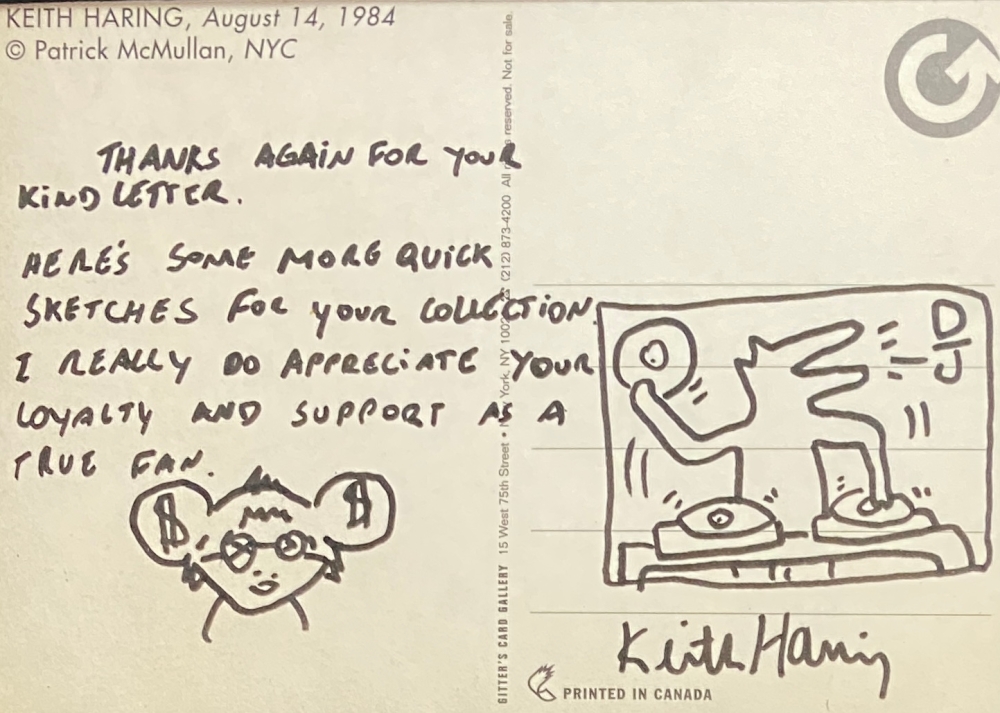 KEITH HARING, August 14, 1984
© Patrick McMullan, NYC
THANKS AGAIN FOR YOUR
KIND LETTER.
HERE'S SOME MORE QUICK
SKETCHES FOR YOUR COLLECTION.
I REALLY DO APPRECIATE YOUR
LOYALTY AND SUPPORT AS A
TRUE FAN.
$ $
GITTER'S CARD GALLERY 15 West 75th Street • New York, NY (212) 873-4200 All reserved. Not for sale.
D
J
Keith Haring
PRINTED IN CANADA